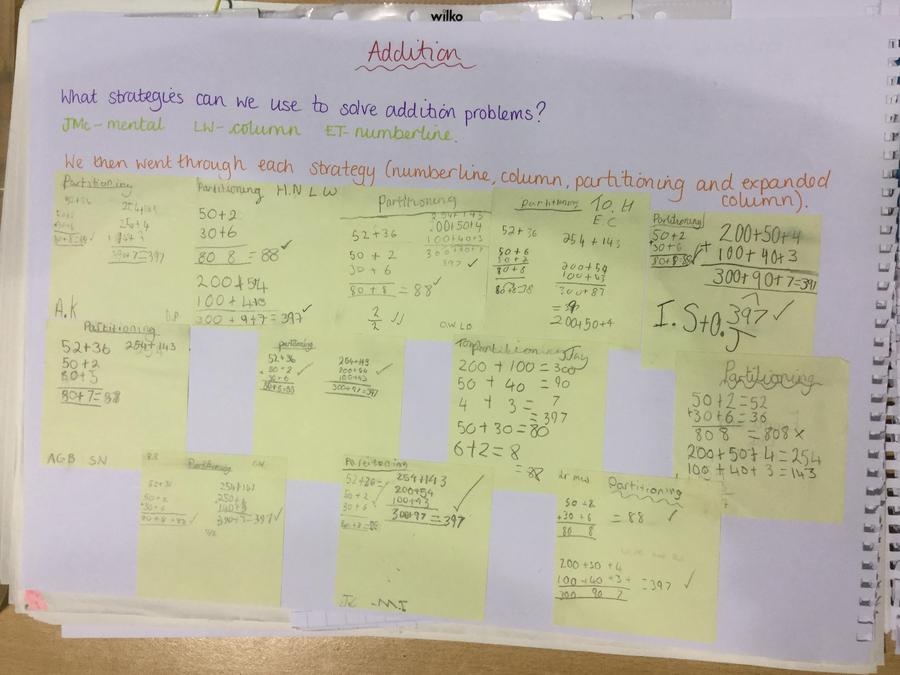 wilko
Addition
What strategies can we use to solve addition problems?
JMc - mental LW - column ET - numberline.
We then went through each strategy (numberline, column, partitioning and expanded
column).
Partitioning
52+36 254+143
80+8=88 ✓
390+7=397
A.K D.P
Partitioning H.N L W
50+2
30+6
80 8 = 88 ✓
200+54
100+43
300+9+7=397 ✓
Partitioning
52+36
50 + 2
30 + 6
80+8 = 88 ✓
254+143
200+50+4
100+40+3
397 ✓
2/2
O.W L.O
partitioning TO.H
E.C
52+36 254+143
50+6
80+8
200+54
100+43
300+87
200+50+4
Partitioning
50+2
+30+6
80+8=88 ✓
200+50+4
+ 100+40+3
300+90+7=397
397 ✓
I.S+O.J
Partitioning
52+36 254+143
50+2
80+3
80+7=88
AGB SN
partitioning
52+36 254+143
50+2 ✓ 200+54
30+6 100+43
300+97=397 ✓
Partitioning Jay
200 + 100 = 300
50 + 40 = 90
4 + 3 = 7
= 397
50+30=80
6+2=8
= 88
Partitioning
50+2=52
+30+6=36
80 8 = 808 x
200+50+4=254
100+40+3=143
Partitioning
52+36 254+143
50+2
30+6
80+8=88 ✓
390+7=397 ✓
Partitioning
52+36= 254+143
50+2 200+54
30+6 100+43
80+8=88 300+97=397 ✓
JK - M.I
Partitioning
50+2
+30+6 = 88 ✓
80 8
200+50+4
100+40+3+ = 397 ✓
300 90 7